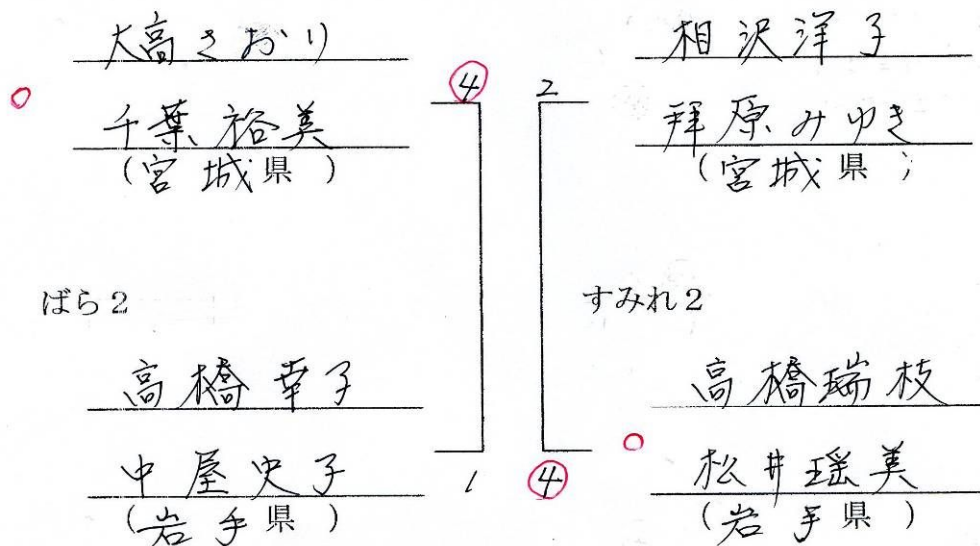 大高さおり
千葉裕美
(宮城県)
4
ばら2
高橋幸子
中屋史子
(岩手県)
1
相沢洋子
2
拜原みゆき
(宮城県)
すみれ2
高橋瑞枝
松井瑶美
(岩手県)
4